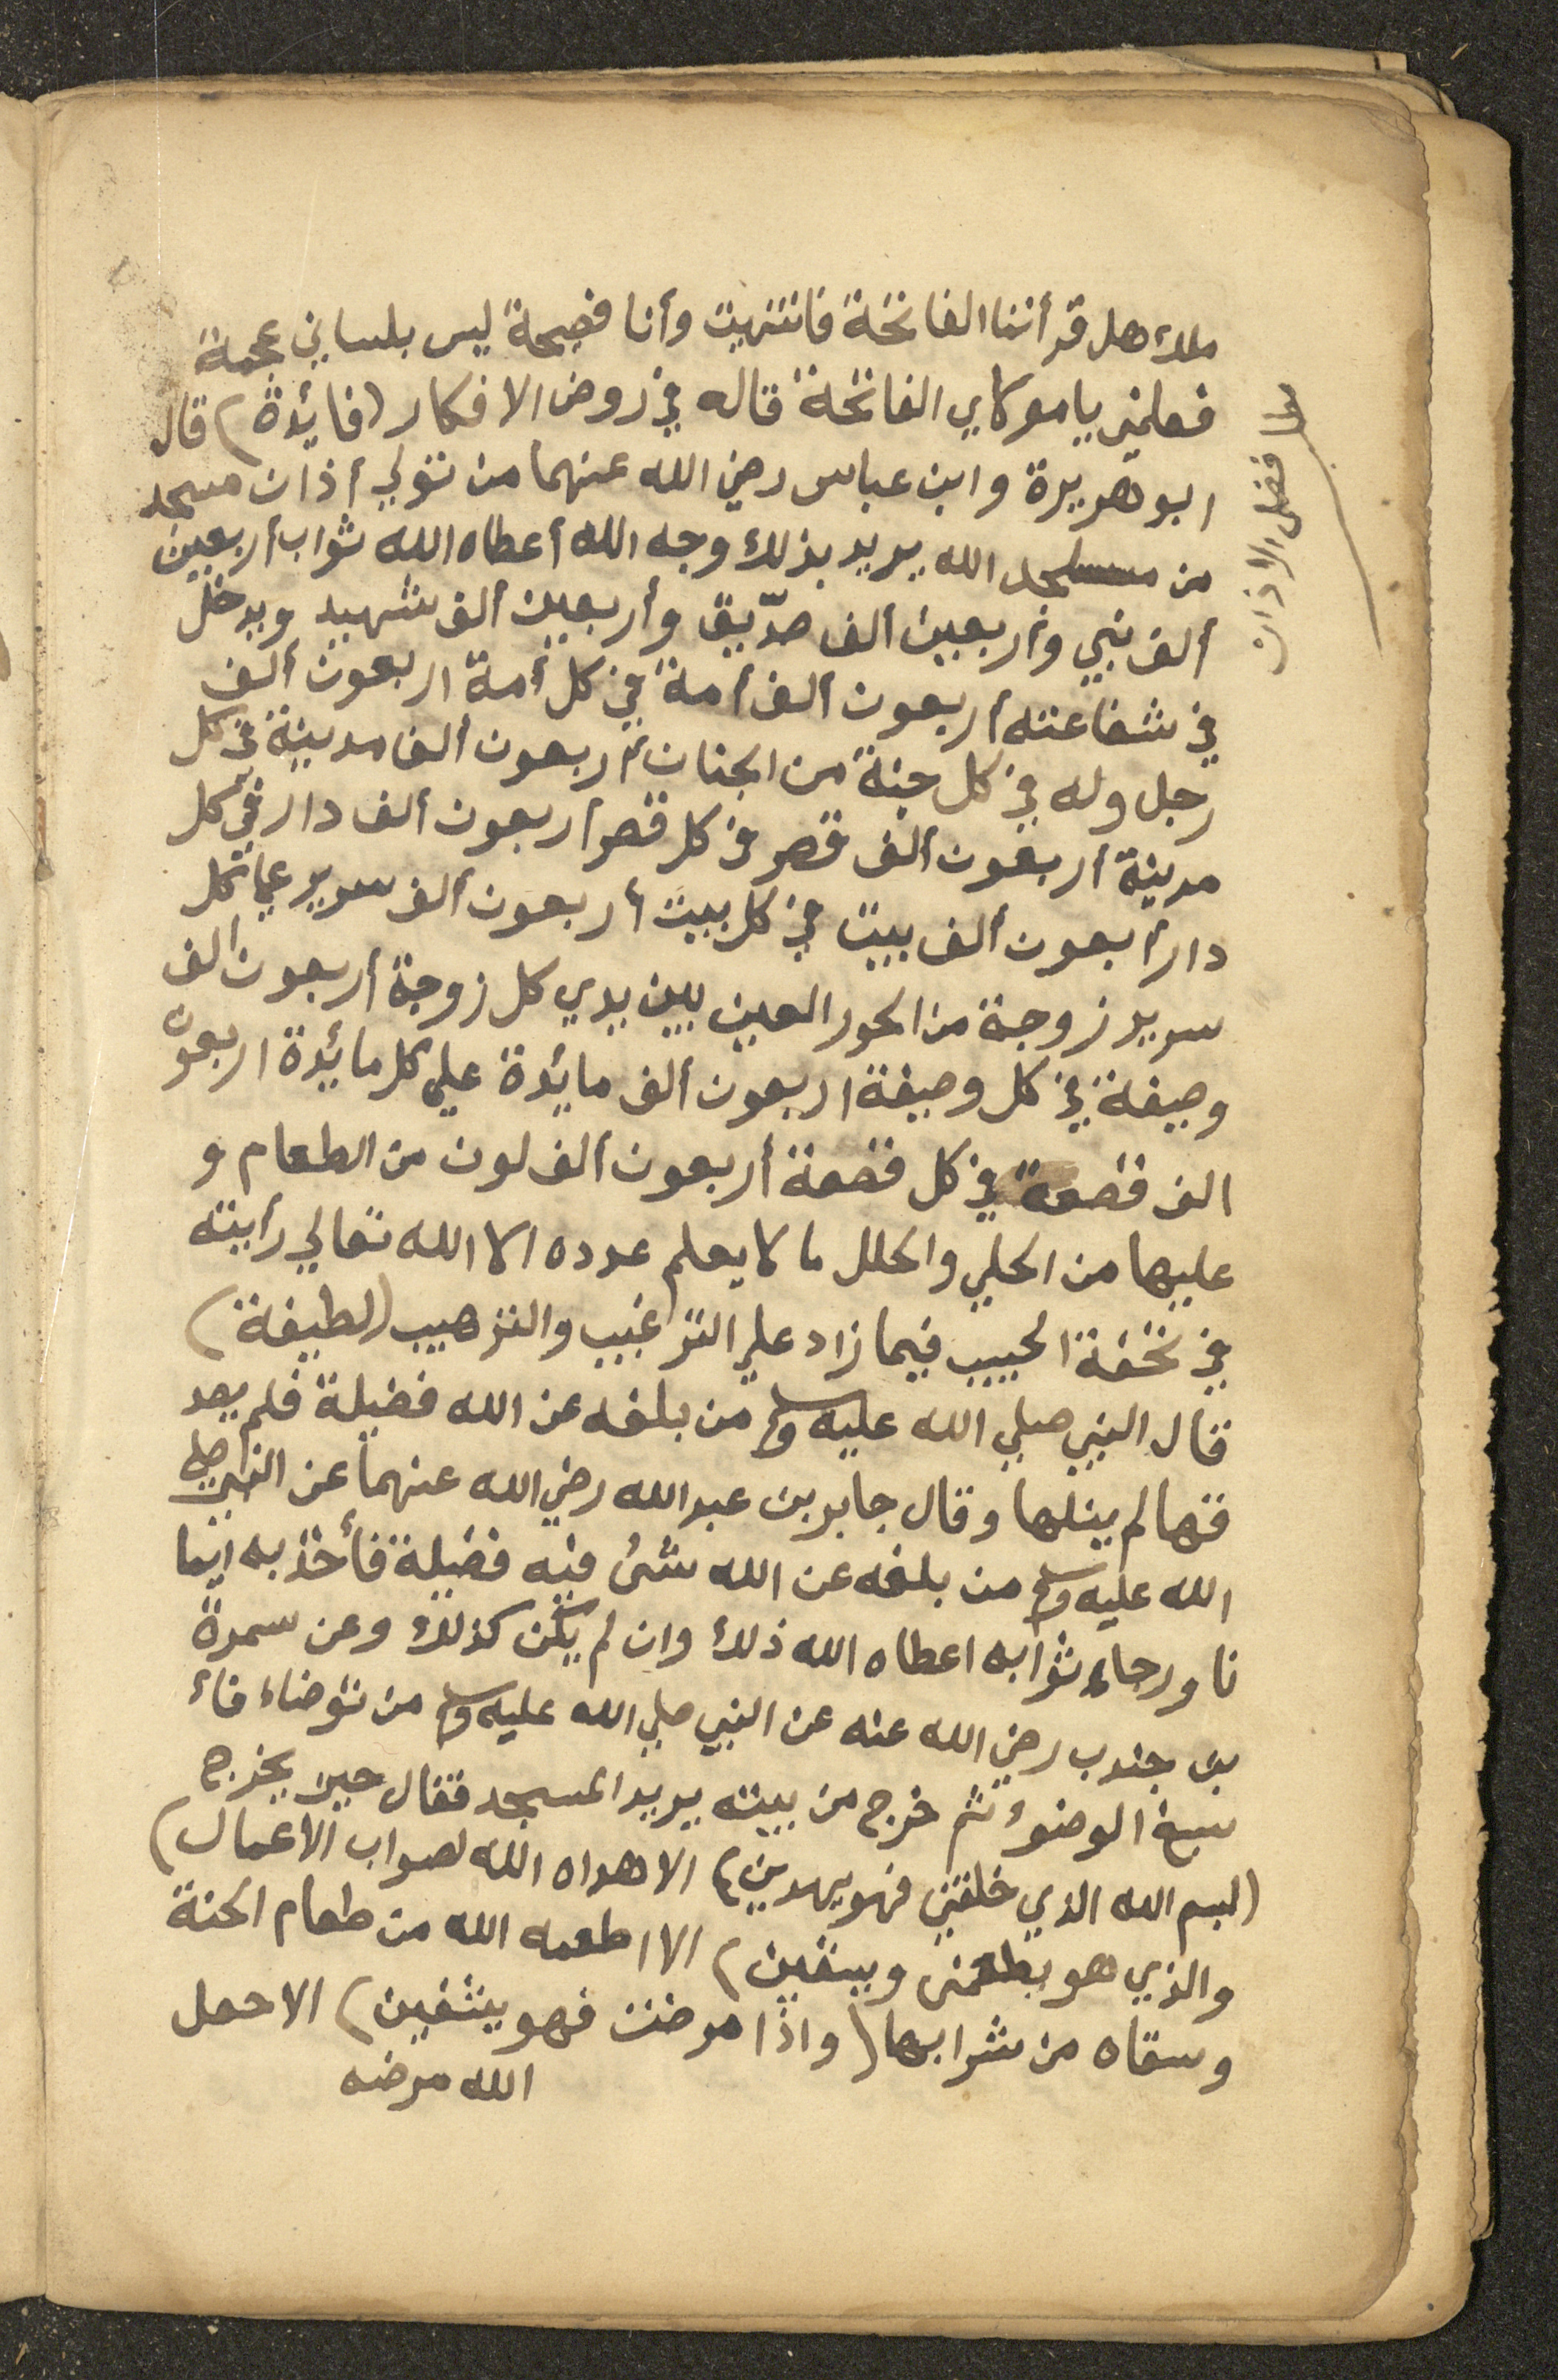 ملك هل قرأتنا الفاتحة فانتهيت وأنا فصيحة ليس بلساني عجمة
فعلمني يا مولاي الفاتحة قاله في روض الافكار (فائدة) قال
ابو هريرة وابن عباس رضي الله عنهما من تولي أذان مسجد
من مسلجد الله يريد بذلك وجه الله أعطاه الله ثواب أربعين
ألف نبي وأربعين ألف صدّيق وأربعين ألف شهيد ويدخل
في شفاعته أربعون ألف أمة في كل أمة اربعون ألف
رجل وله في كل جنة من الجنان أربعون ألف مدينة في كل
مدينة أربعون ألف قصر في كل قصر أربعون ألف دار في كل
دار أبعون ألف بيت في كل بيت أربعون ألف سرير علي كل
سرير زوجة من الحور العين بين يدي كل زوجة أربعون الف
وصيفة في كل وصيفة اربعون ألف مائدة علي كل مائدة اربعون
الف قصعة في كل قصعة أربعون ألف لون من الطعام و
عليها من الحلي والحلل ما لا يعلم عدده الا الله تعالي رأيته
في تحفة الحبيب فيما زاد علي الترغيب والترهيب (لطيفة)
قال النبي صلي الله عليه وسلم من بلغه عن الله فضيلة فلم يصد
قها لم ينلها وقال جابر بن عبد الله رضي الله عنهما عن النبي صلي
الله عليه وسلم من بلغه عن الله شئ فيه فضيلة فأخذ به ايما
نا ورجاء ثوابه اعطاه الله ذلك وان لم يكن كذلك وعن سمرة
بن جندب رضي الله عنه عن النبي صلي الله عليه وسلم من توضاء فأ
سبغ الوضوء ثم خرج من بيته يريد المسجد فقال حين يخرج
(بسم الله الذي خلقني فهو يهدين) الا هداه الله لصواب الاعمال)
والذي هو يطعمنى ويسقين) الا اطعمه الله من طعام الجنة
وسقاه من شرابها (واذا مرضت فهو يشفين) الا جعل
الله مرضه
فضل الاذان